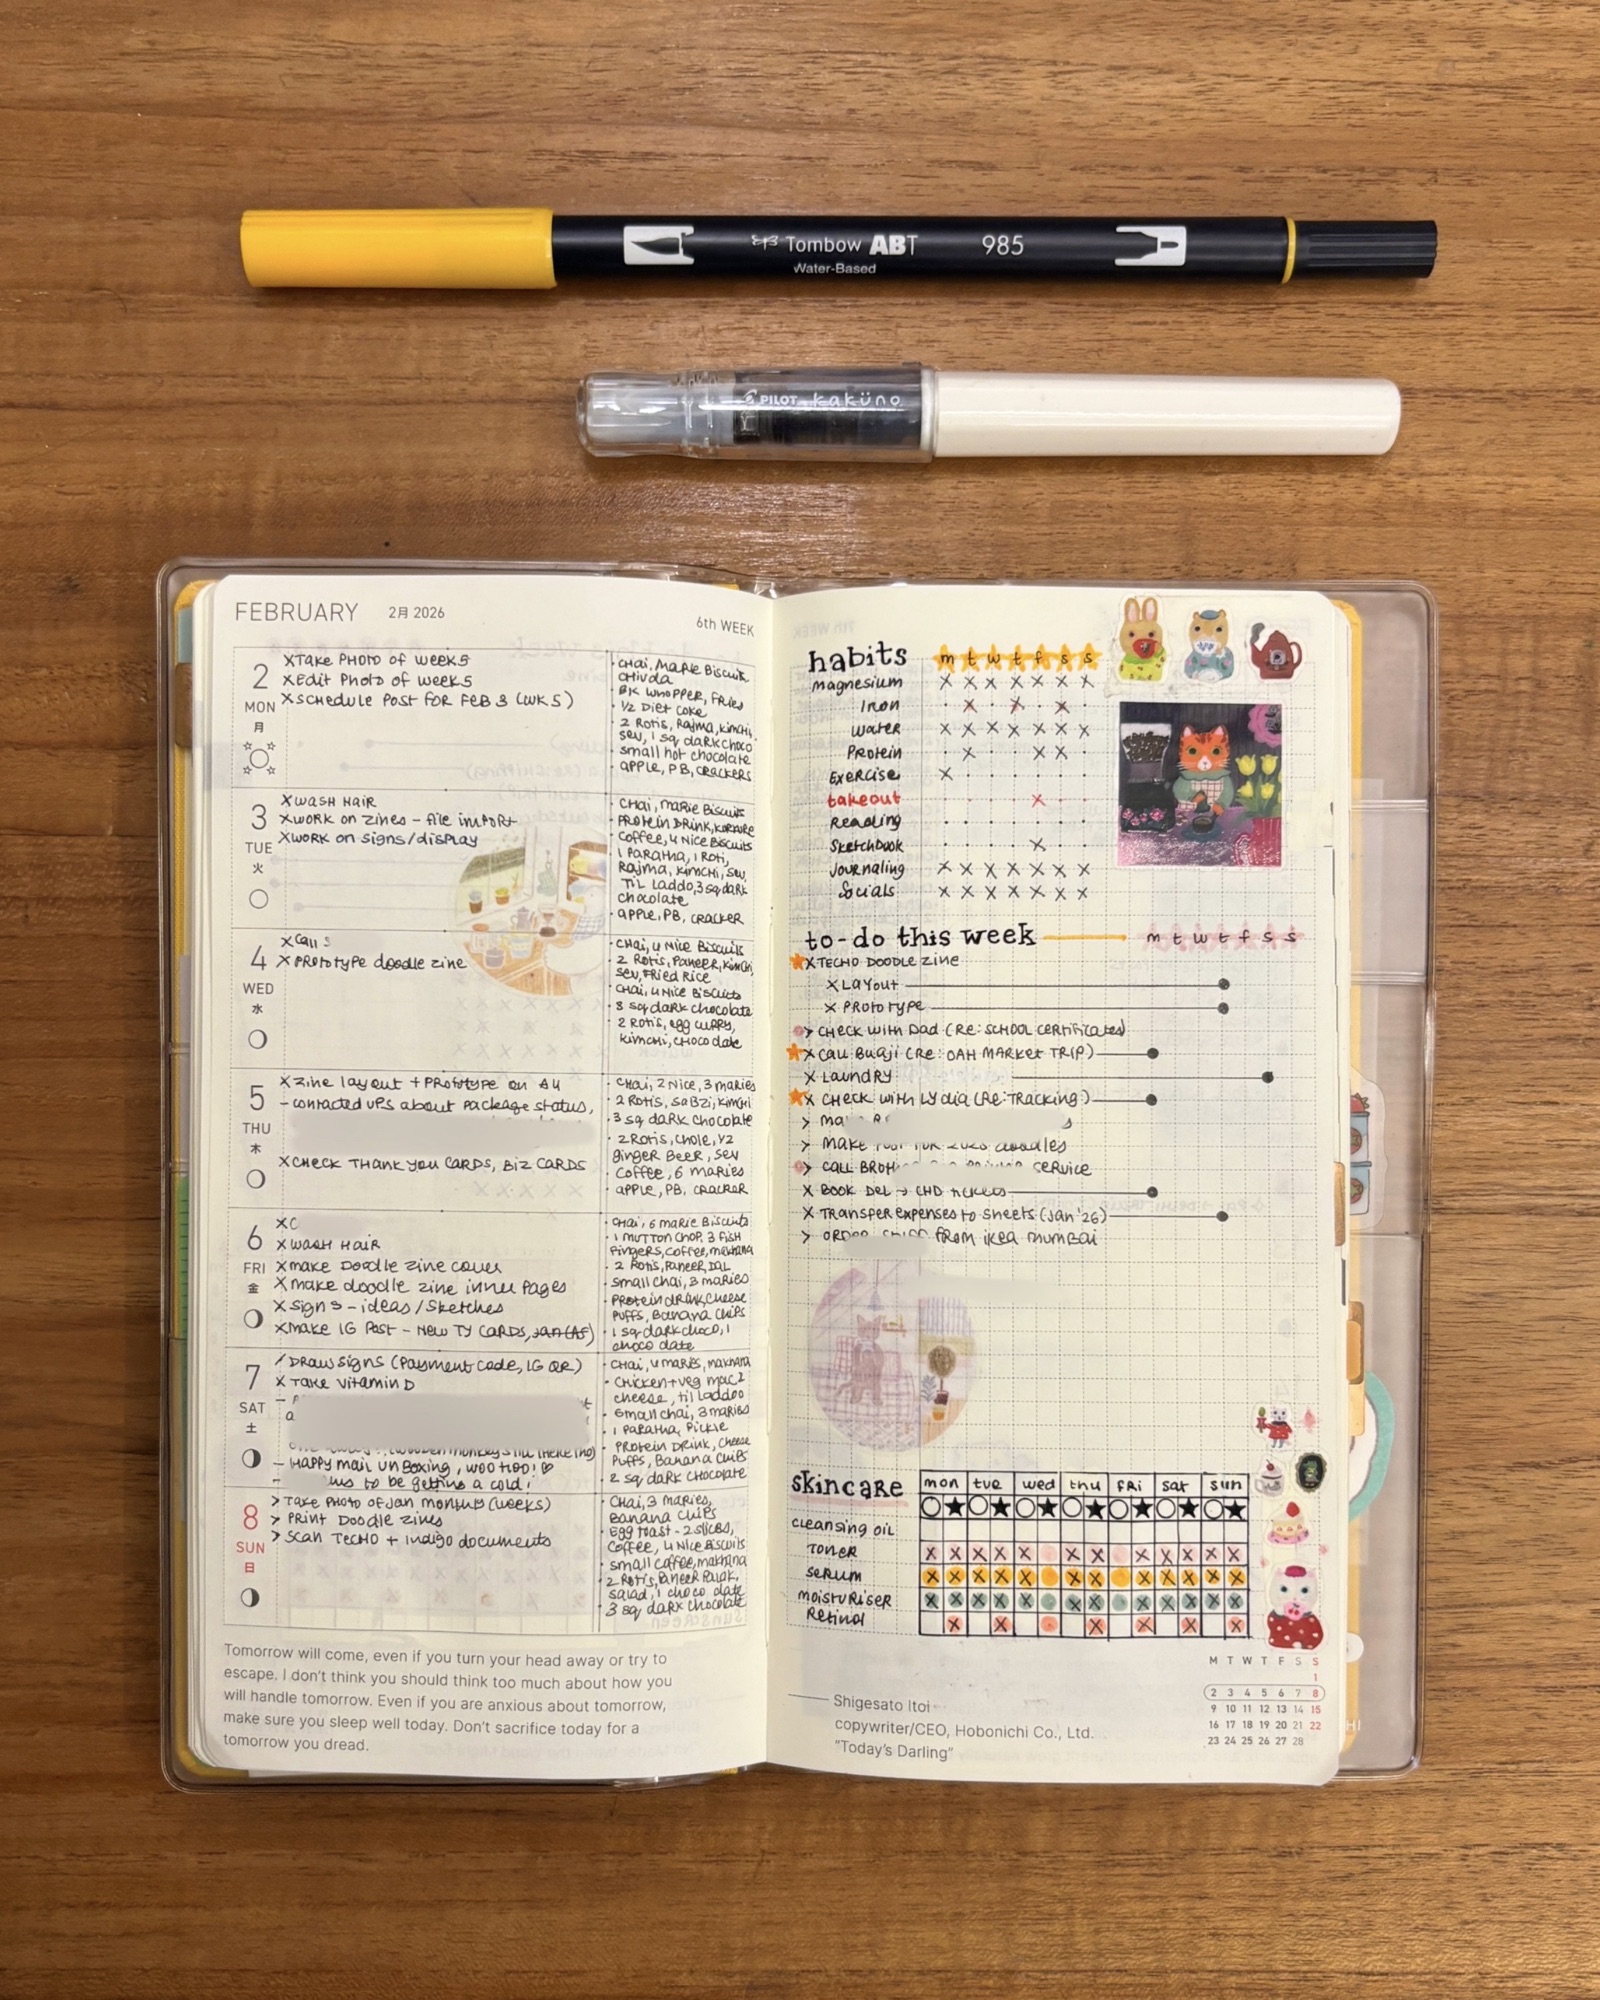 Tombow ABT 985
Water-Based
PILOT kaküno
FEBRUARY 2月 2026
6th WEEK
2
MON
月
XTAKE PHOTO OF WEEK 5
XEDIT PHOTO OF WEEK 5
XSCHEDULE POST FOR FEB 3 (WK 5)
· CHAI, MARIE BISCUIT
CHIVDA
· BK WHOPPER, FRIES
· 1/2 DIET COKE
· 2 ROTIS, RAJMA, KIMCHI,
SEV, 1 SQ DARK CHOCO
· SMALL HOT CHOCOLATE
· APPLE, PB, CRACKERS
3
TUE
火
XWASH HAIR
XWORK ON ZINES - FILE IMPORT
XWORK ON SIGNS/DISPLAY
· CHAI, MARIE BISCUITS
· PROTEIN DRINK, KURKURE
· COFFEE, 4 NICE BISCUITS
· 1 PARATHA, 1 ROTI,
RAJMA, KIMCHI, SEV,
TIL LADDO, 3 SQ DARK
CHOCOLATE
· APPLE, PB, CRACKER
4
WED
水
XCALL
XPROTOTYPE DOODLE ZINE
· CHAI, 4 NICE BISCUITS
· 2 ROTIS, PANEER, KIMCHI,
SEV, FRIED RICE
· CHAI, 4 NICE BISCUITS
· 8 SQ DARK CHOCOLATE
· 2 ROTIS, EGG CURRY,
KIMCHI, CHOCO DATE
5
THU
木
XZINE LAYOUT + PROTOTYPE ON A4
- CONTACTED UPS ABOUT PACKAGE STATUS,
XCHECK THANK YOU CARDS, BIZ CARDS
· CHAI, 2 NICE, 3 MARIES
· 2 ROTIS, SABZI, KIMCHI
· 3 SQ DARK CHOCOLATE
· 2 ROTIS, CHOLE, 1/2
GINGER BEER, SEV
· COFFEE, 6 MARIES
· APPLE, PB, CRACKER
6
FRI
金
XC
XWASH HAIR
XMAKE DOODLE ZINE COVER
XMAKE DOODLE ZINE INNER PAGES
XSIGNS - IDEAS / SKETCHES
XMAKE IG POST - NEW TY CARDS, JAN (A5)
· CHAI, 6 MARIE BISCUITS
· 1 MUTTON CHOP, 3 FISH
FINGERS, COFFEE, MAKHANA
· 2 ROTIS, PANEER, DAL
· SMALL CHAI, 3 MARIES
· PROTEIN DRINK, CHEESE
PUFFS, BANANA CHIPS
· 1 SQ DARK CHOCO, 1
CHOCO DATE
7
SAT
土
/ DRAW SIGNS (PAYMENT CODE, IG QR)
X TAKE VITAMIN D
a
- HAPPY MAIL UNBOXING, WOO HOO! ♡
to be getting a cold!
· CHAI, 4 MARIES, MAKHANA
· CHICKEN + VEG MAC 2
CHEESE, TIL LADDOO
· SMALL CHAI, 3 MARIES
· 1 PARATHA, PICKLE
· PROTEIN DRINK, CHEESE
PUFFS, BANANA CHIPS
· 2 SQ DARK CHOCOLATE
8
SUN
日
> TAKE PHOTO OF JAN MONTHLY (WEEKS)
> PRINT DOODLE ZINES
> SCAN TECHO + INDIGO DOCUMENTS
· CHAI, 3 MARIES,
BANANA CHIPS
· EGG TOAST - 2 SLICES,
COFFEE, 4 NICE BISCUITS
· SMALL COFFEE, MAKHANA
· 2 ROTIS, PANEER PALAK,
SALAD, 1 CHOCO DATE
· 3 SQ DARK CHOCOLATE
Tomorrow will come, even if you turn your head away or try to
escape. I don't think you should think too much about how you
will handle tomorrow. Even if you are anxious about tomorrow,
make sure you sleep well today. Don't sacrifice today for a
tomorrow you dread.
habits m t w t f s s
magnesium X X X X X X X
Iron · X · X · X ·
Water X X X X X X X
Protein · X · · X X ·
Exercise X · · · · · ·
takeout · · · · X · ·
Reading · · · · · · ·
Sketchbook · · · · X · ·
Journaling X X X X X X X
Socials X X X X X X X
to-do this week m t w t f s s
X TECHO DOODLE ZINE
X LAYOUT
X PROTOTYPE
> CHECK WITH DAD (RE: SCHOOL CERTIFICATES)
X CALL BUAJI (RE: OAH MARKET TRIP)
X LAUNDRY
X CHECK WITH LYDIA (RE: TRACKING)
> MA
> MAKE POST FOR 2025 DOODLES
> CALL SERVICE
X BOOK DEL → CHD TICKETS
X TRANSFER EXPENSES TO SHEETS (JAN '26)
> ORDER FROM IKEA MUMBAI
skincare mon tue wed thu fri sat sun
cleansing oil
TONER X X X X X X X X X X X X
SERUM X X X X X X X X X X X X
MOISTURISER X X X X X X X X X X X X
Retinol X X X X X X
Shigesato Itoi
copywriter/CEO, Hobonichi Co., Ltd.
"Today's Darling"
M T W T F S S
1
2 3 4 5 6 7 8
9 10 11 12 13 14 15
16 17 18 19 20 21 22
23 24 25 26 27 28